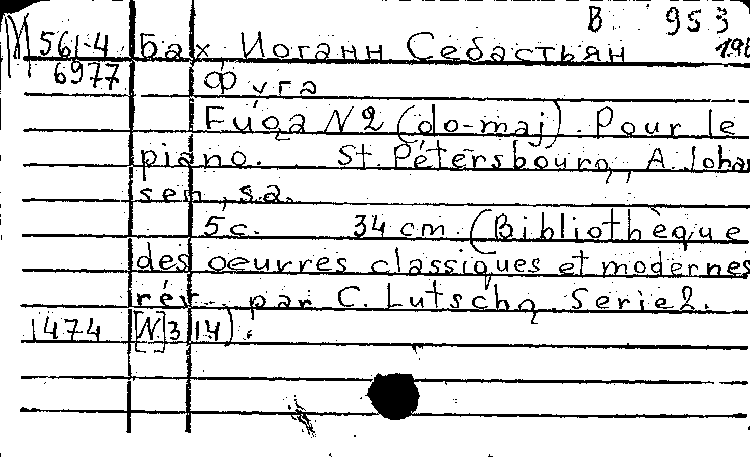 В 953
М 561-4 Бах, Иоганн Себастьян 196
6977 Фуга
Fuga N2 (do-maj). Pour le
piano. St. Pétersbourg, A. Johan
sen, s.a.
5 c. 34 cm. (Bibliothèque
des oeuvres classiques et modernes
rév. par C. Lutschg Serie 2.
1474 [N] 314).